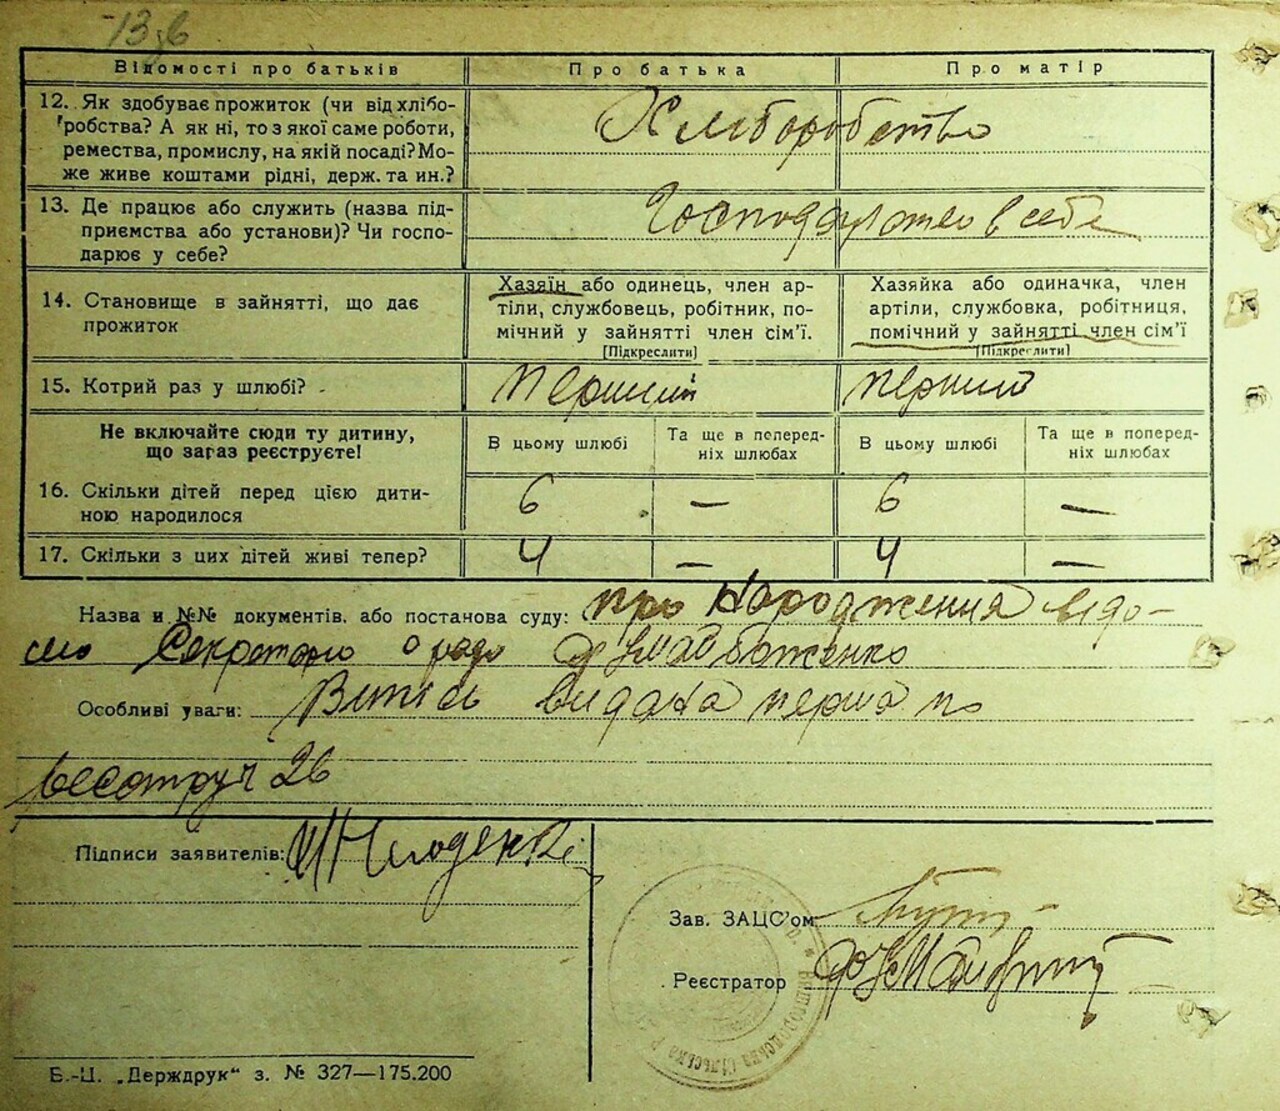 13зв
Відомості про батьків
Про батька
Про матір
12. Як здобуває прожиток (чи від хлібо-
робства? А як ні, то з якої саме роботи,
ремества, промислу, на якій посаді? Мо-
же живе коштами рідні, держ. та ин.?
Хліборобство
13. Де працює або служить (назва під-
приємства або установи)? Чи госпо-
дарює у себе?
в себе
14. Становище в зайнятті, що дає
прожиток
Хазяїн або одинець, член ар-
тілі, службовець, робітник, по-
мічний у зайнятті член сім'ї.
[Підкреслити]
Хазяйка або одиначка, член
артіли, службовка, робітниця,
помічний у зайнятті член сім'ї
[Підкреслити]
15. Котрий раз у шлюбі?
Перший
Перший
Не включайте сюди ту дитину,
що загаз реєструєте!
В цьому шлюбі
Та ще в поперед-
ніх шлюбах
В цьому шлюбі
Та ще в поперед-
ніх шлюбах
16. Скільки дітей перед цією дити-
ною народилося
6 — 6 —
17. Скільки з цих дітей живі тепер?
4 — 4 —
Назва и №№ документів, або постанова суду: про Народження відо-
мо Секретарю
Особливі уваги: Витісь видана перша по
26
Підписи заявителів:
Зав. ЗАЦС'ом
Реєстратор
Вишгородська сільська Р
Б.-Ц. „Держдрук“ з. № 327—175.200